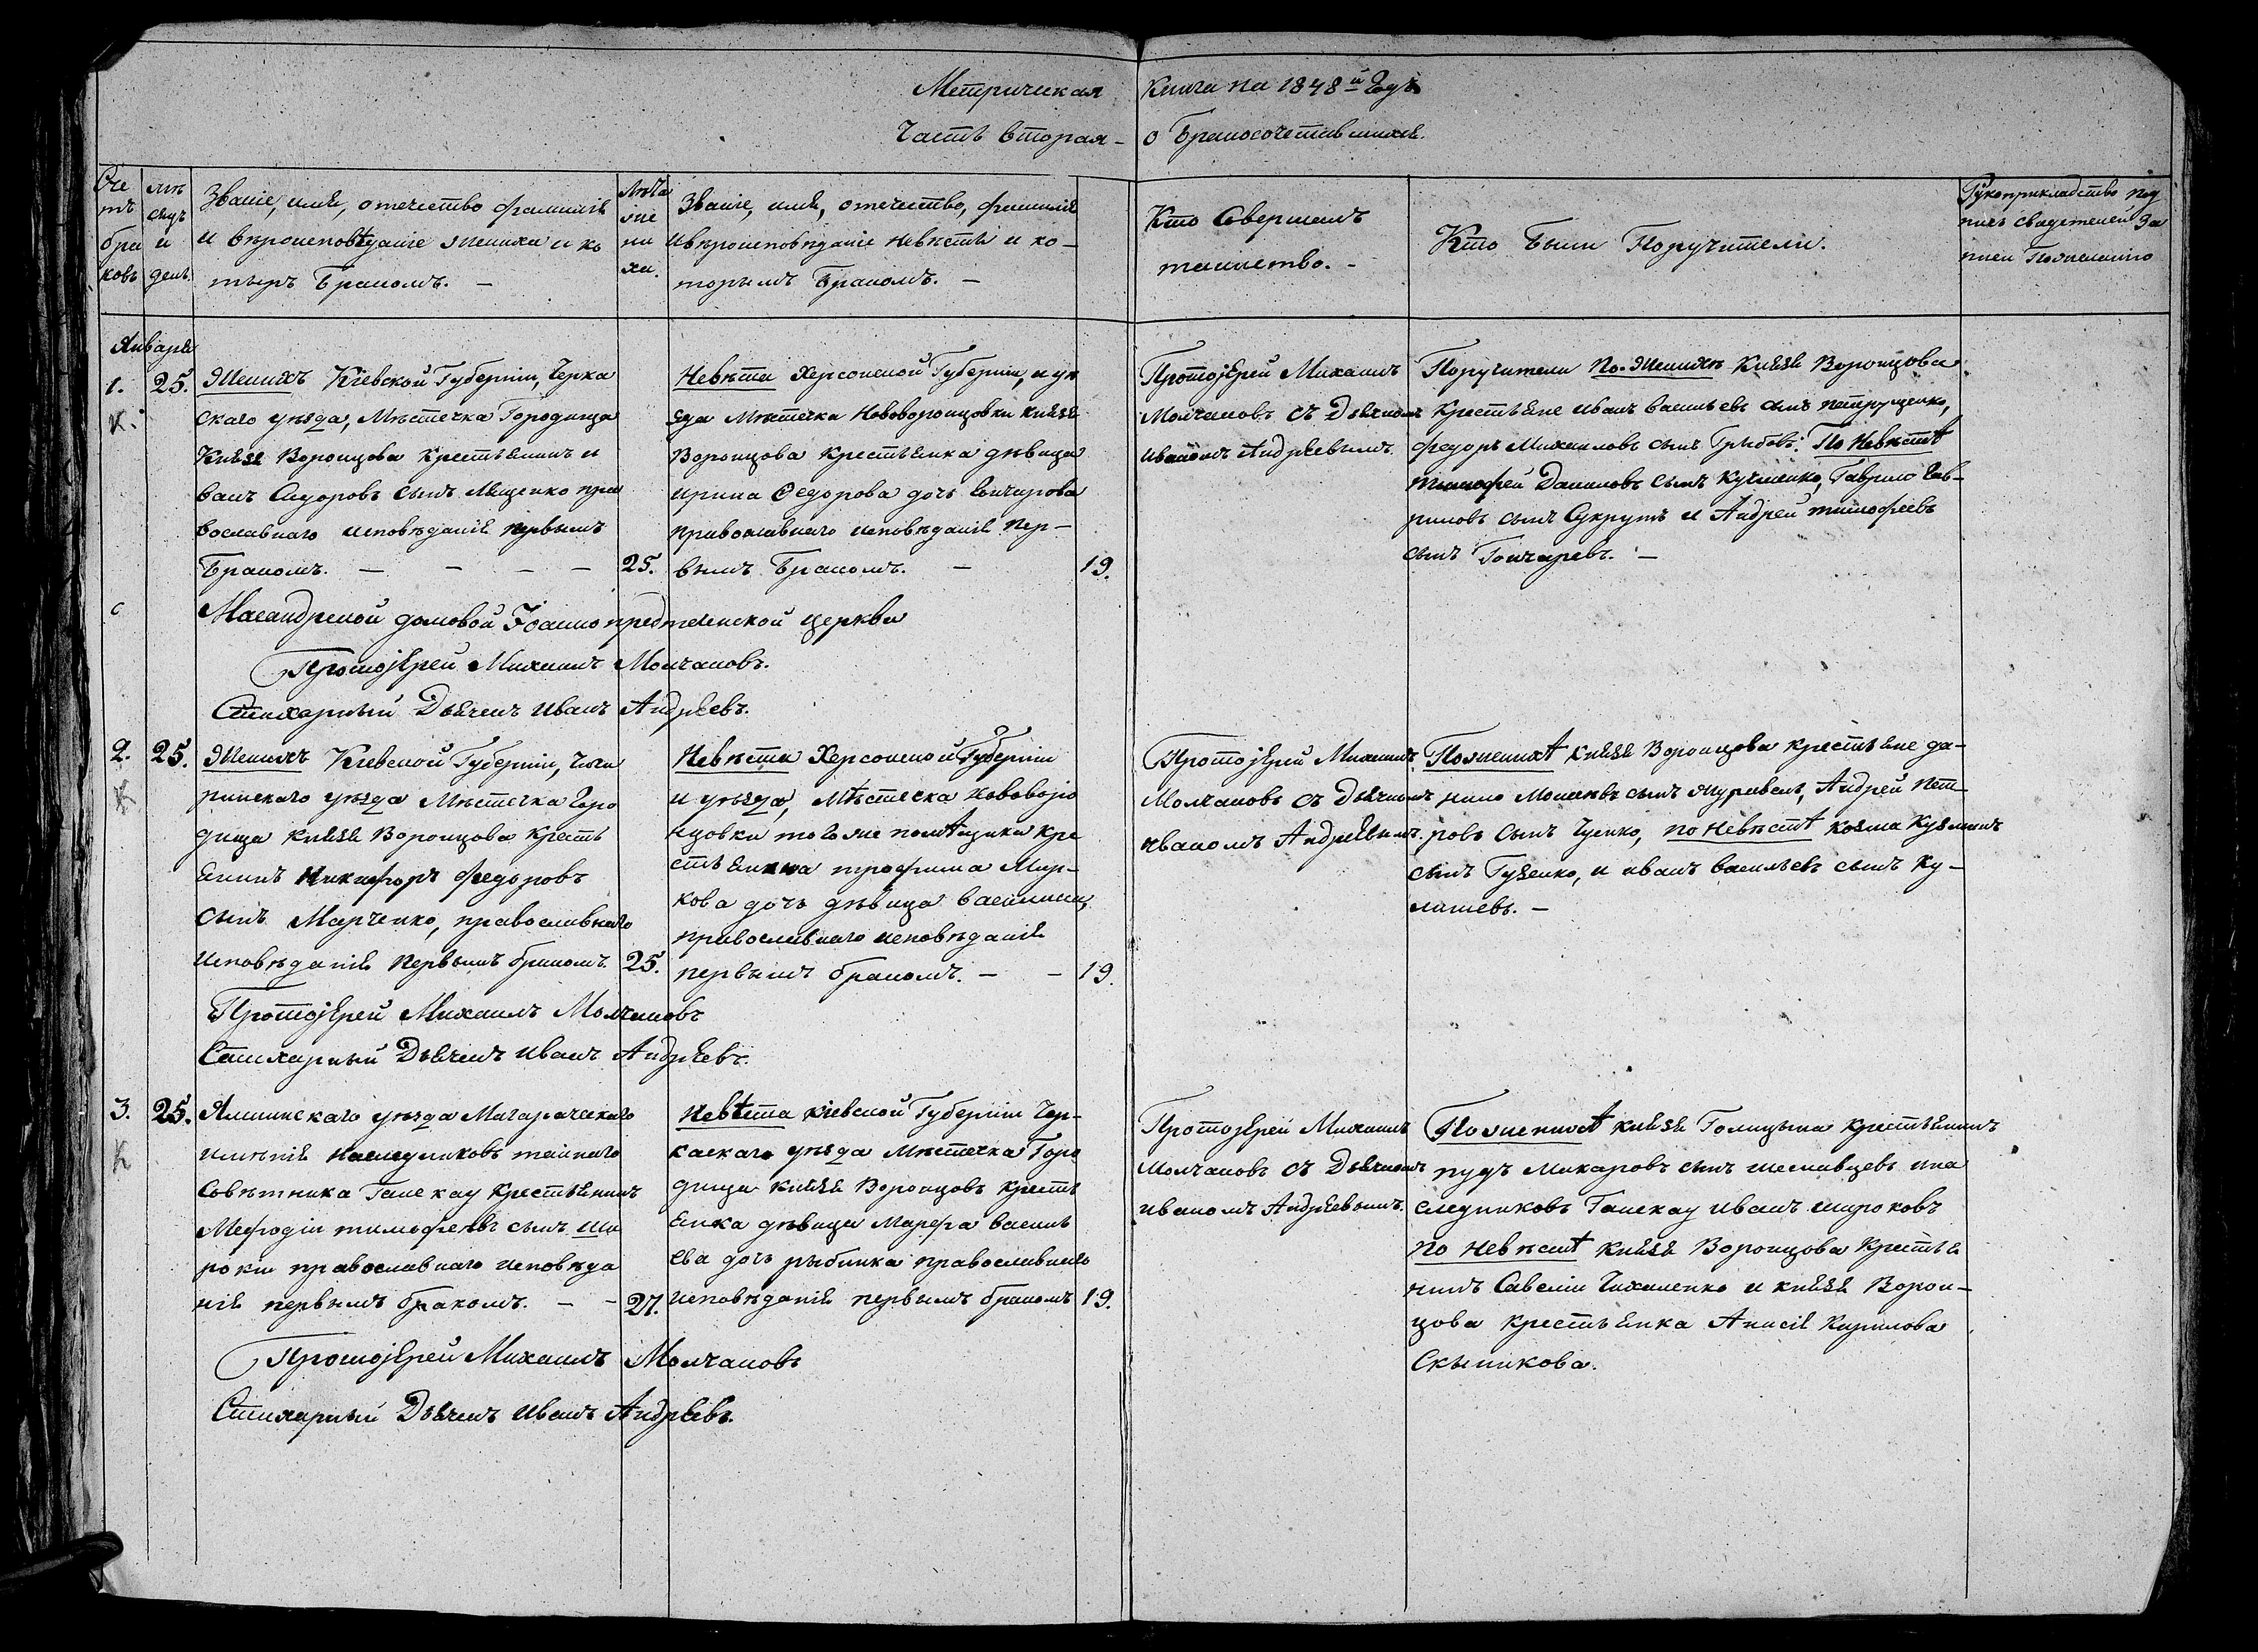 Метрическая Книга на 1848й Годъ
Часть вторая – о Бракосочетавшихся.
Сче
тъ
бра
ковъ
мѣ
сяцъ
и
день.
Званіе, имя, отечество фамилія
и вѣроисповѣданіе жениха и ко
тырѣ Бракомъ. –
Лѣта
же
ни
ха.
Званіе, имя, отечество, фамилія
и вѣроисповѣданіе невѣсты и ко–
торымъ Бракомъ. –
Кто Совершалъ
таинство. –
Кто Были Поручители.
Рукоприкладство под
пись свидетелей За
писи Пожеланію
Января
1.
25.
К.
Женихъ Кіевской Губерніи, Черка
скаго уѣзда, Мѣстечка Городища
Князя Воронцова Крестьянинъ и
ванъ Сидоровъ сынъ Ищенко пра
вославнаго исповѣданія первымъ
Бракомъ. – – – –
25.
Невѣста Херсонской Губерніи, и уѣ
зда Мѣстечка Нововоронцовки князя
Воронцова Крестьянка дѣвица
ирина Федорова дочь Гончарова
православнаго исповѣданія пер–
вымъ Бракомъ. –
19.
Протоіерей Михаилъ
Молчановъ съ Дьячкомъ
иваномъ Андреевымъ
Поручители По-Женихѣ Князя Воронцова
Крестьяне иванъ васильевъ сынъ петрущенко,
федоръ Михаиловъ сынъ Грыбовъ: По Невѣстѣ
тимофей Даниловъ сынъ Кузменко, Гаврило Гав–
риловъ сынъ Скрутъ и Андрей тимофеевъ
сынъ Гончаревъ. –
с
Масандрской домовой Іоаннопредтеченской церкви
Протоіерей Михаилъ Молчановъ.
Стихарный Дьячекъ иванъ Андреевъ.
2.
25.
К
Женихъ Кіевской Губерніи, Чиги
ринскаго уѣзда Мѣстечка Горо
дища князя Воронцова Кресть
янинъ Никифоръ федоровъ
сынъ Марченко, православнаго
исповѣданія первымъ бракомъ.
25.
Невѣста Херсонской Губерніи
и уѣзда, Мѣстечка Нововоро
нцовки того же помѣщика кре
стьянина трофима Мар–
кова дочь дѣвица василиса,
православнаго исповѣданія
первымъ бракомъ. – –
19.
Протоіерей Михаилъ
Молчановъ съ Дьячкомъ
иваномъ Андреевымъ.
По женихѣ князя Воронцова крестьяне да–
нило Моисеевъ сынъ Журавель, Андрей Пет–
ровъ сынъ Гусенко, по невѣстѣ козма Кузминъ
сынъ Гузенко, и иванъ васильевъ сынъ Ку–
лишевъ. –
Протоіерей Михаилъ Молчановъ
Стихарный Дьячекъ иванъ Андреевъ.
3.
25.
К
Ялтинскаго уѣзда Магарачскаго
имѣнія наследниковъ тайнаго
Совѣтника Гане кау крестьянинъ
Мефодій тимофеевъ сынъ Ши
рокій православнаго исповѣда
нія первымъ бракомъ. – –
27.
Невѣста кіевской Губерніи Чер–
каскаго уѣзда Мѣстечка Горо
дища князя Воронцовъ кресть
янка дѣвица Марфа василь
ева дочь рыбинка православнаго
исповѣданія первымъ бракомъ
19.
Протоіерей Михаилъ
Молчановъ съ Дьячкомъ
иваномъ Андреевымъ.
По женихѣ князя Голицына крестьянинъ
нудъ Макаровъ сынъ шесливцевъ и на
следниковъ Ганекау иванъ широковъ
по невѣстѣ князя Воронцова крестья
нинъ Савелій Чихиленко и князя Ворон–
цова крестьянка Анисія Кирилова
Скыникова.
Протоіерей Михаилъ Молчановъ
Стихарный Дьячекъ иванъ Андреевъ.